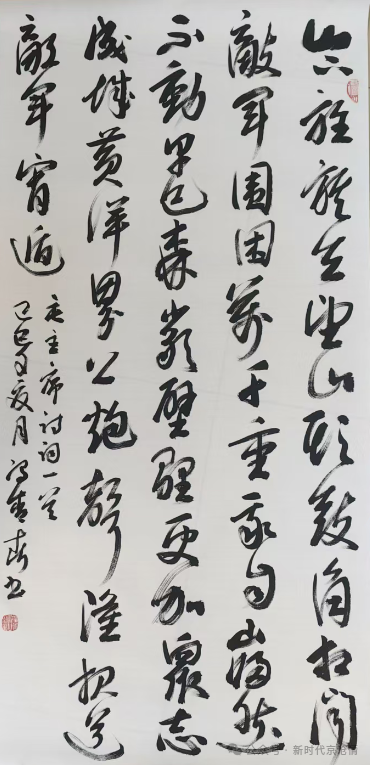 山下旌旗在望山头鼓角相闻
敵軍围困萬千重我自巋然
不動早已森嚴壁壘更加衆志
成城黄洋界上炮聲隆报道
敵軍宵遁
毛主席诗词一首
乙巳年夏月书
公众号 · 新时代京